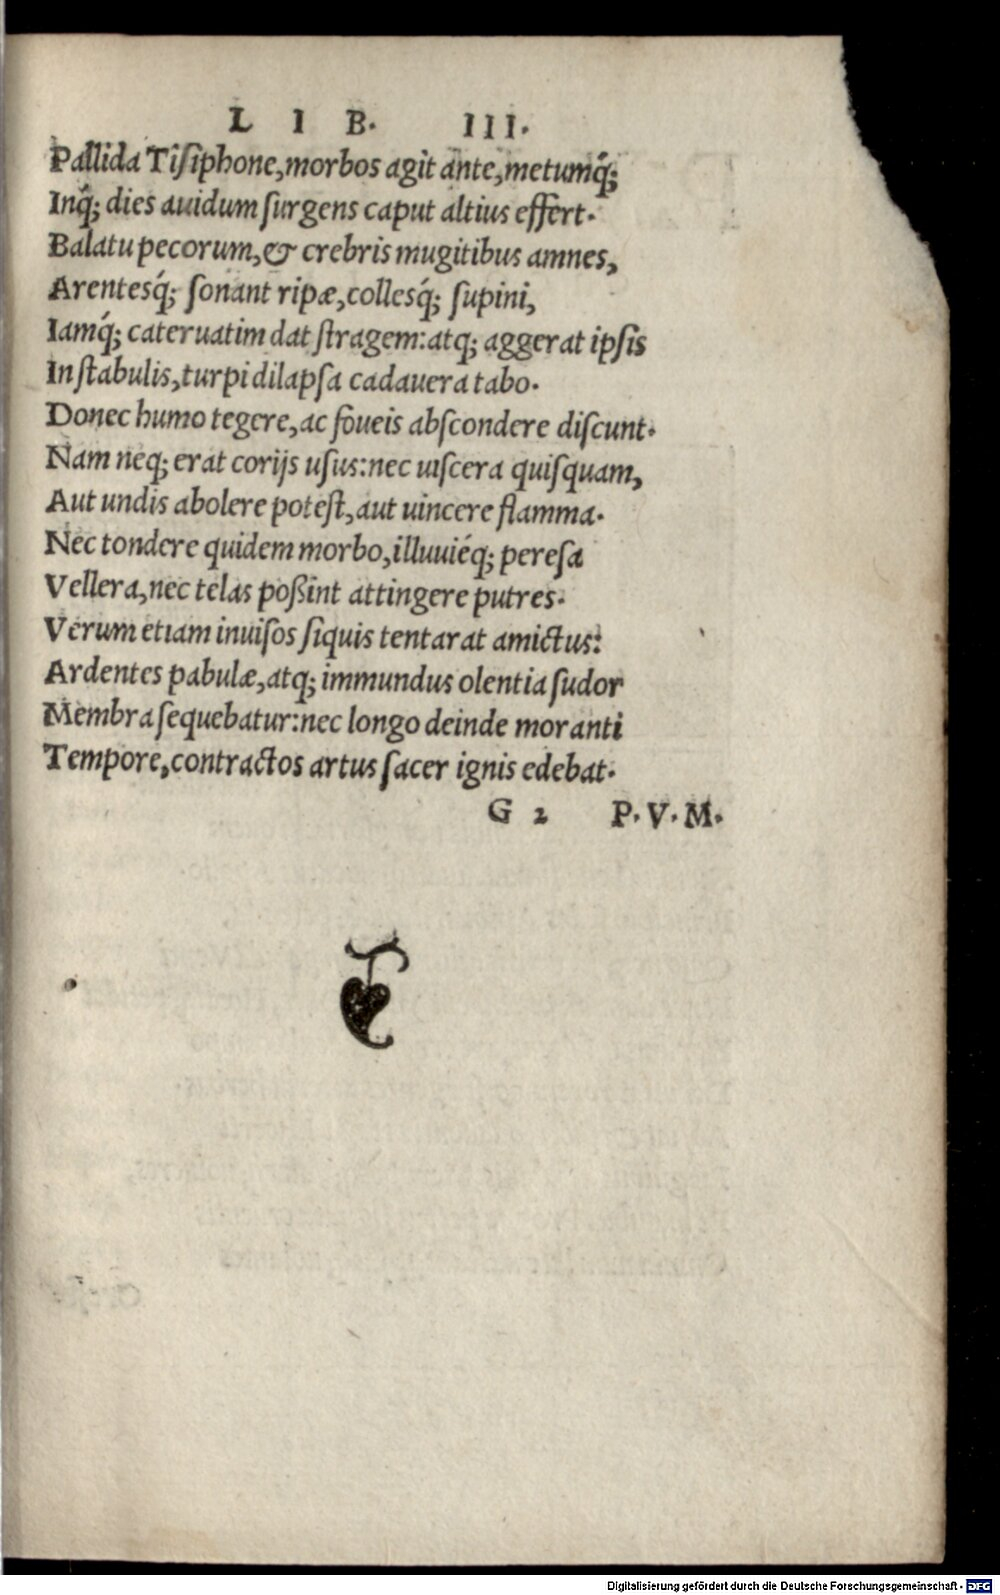 LIB. III.
Pallida Tiſiphone,morbos agit ante,metumq́;
Inq́; dies auidum ſurgens caput altius effert.
Balatu pecorum,& crebris mugitibus amnes,
Arentesq́; ſonant ripæ,collesq́; ſupini,
Iamq́; cateruatim dat ſtragem:atq; aggerat ipſis
In ſtabulis,turpi dilapſa cadauera tabo.
Donec humo tegere,ac foueis abſcondere diſcunt.
Nam neq; erat corijs uſus:nec uiſcera quiſquam,
Aut undis abolere poteſt,aut uincere flamma.
Nec tondere quidem morbo,illuuiéq; pereſa
Vellera,nec telas poßint attingere putres.
Verum etiam inuiſos ſiquis tentarat amictus:
Ardentes pabulæ,atq; immundus olentia ſudor
Membra ſequebatur:nec longo deinde moranti
Tempore,contractos artus ſacer ignis edebat.
G 2 P.V.M.
Digitalisierung gefördert durch die Deutsche Forschungsgemeinschaft - DFG